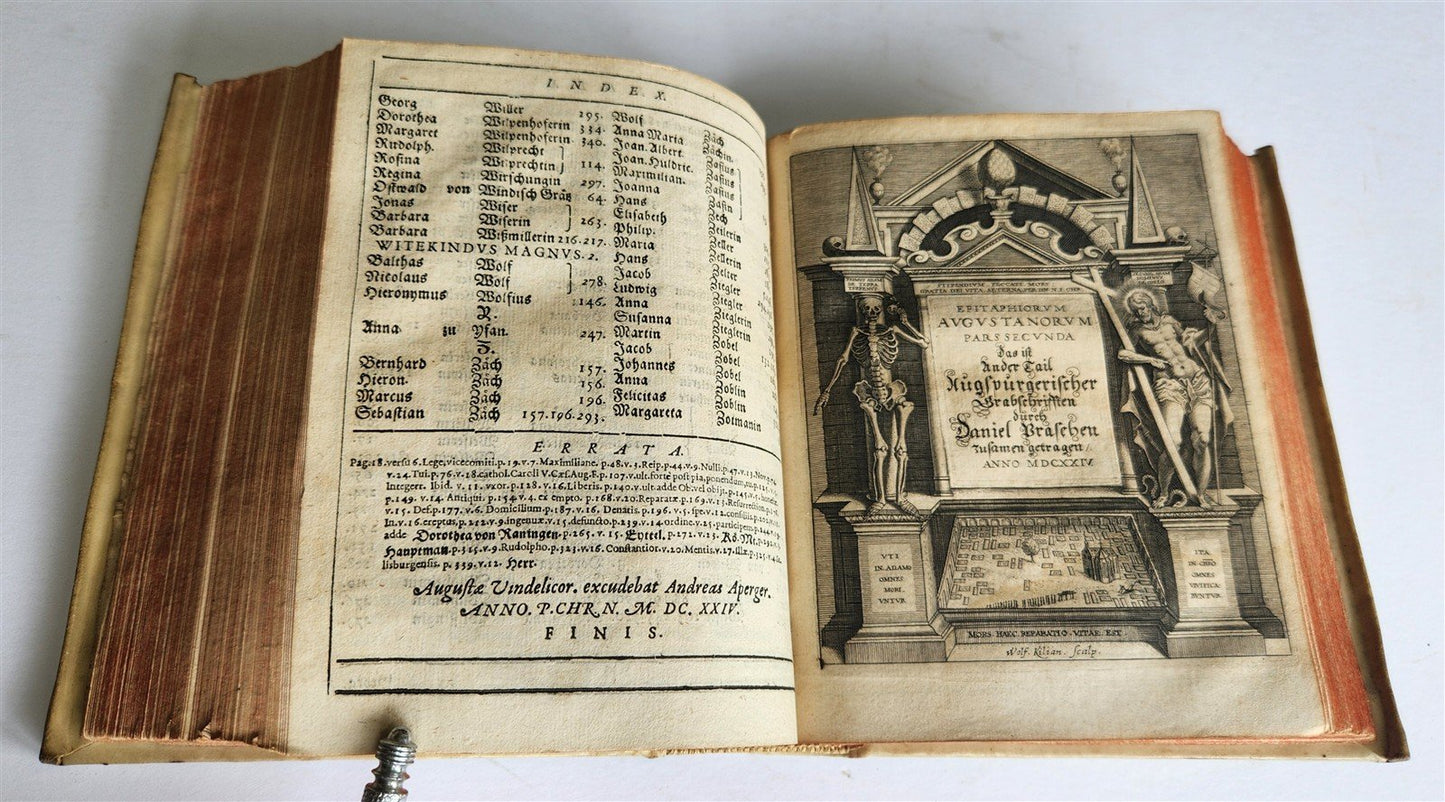 INDEX.
Georg Willer 295.
Dorothea Wilpenhoferin 334.
Margaret Wilpenhoferin 340.
Rudolph. Wilprecht
Rosina Wilprechtin 114.
Regina Wirschungin 297.
Ostwald von Windisch Grätz 64.
Jonas Wiser
Barbara Wiserin 263.
Barbara Wißmillerin 216.217.
WITEKINDVS MAGNVS. 2.
Balthas Wolf
Nicolaus Wolf 278.
Hieronymus Wolfius 146.
Y.
Anna zu Yfan. 247.
Z.
Bernhard Zäch 157.
Hieron. Zäch 156.
Marcus Zäch 196.
Sebastian Zäch 157.196.293.
Wolf Zäch
Anna Maria Zächin.
Joan. Albert. Zasius
Joan. Huldric. Zasius
Maximilian. Zasius
Joanna Zasin
Hans Zech
Elisabeth Zeilerin
Philip. Zeller
Maria Zellerin
Hans Zelter
Jacob Ziegler
Ludwig Ziegler
Anna Zieglerin
Susanna Zieglerin
Martin Zobel
Jacob Zobel
Johannes Zobel
Anna Zoblin
Felicitas Zoblin
Margareta Zotmanin
ERRATA.
Pag. 18. versu 6. Lege, vicecomiti. p. 19. v. 7. Maximiliane. p. 48. v. 3. Reip. p. 44. v. 9. Nulli. p. 47. v. 13.
v. 24. Tui. p. 76. v. 18. cathol. Caroli V. Cæs. Aug. F. p. 107. v. ult. forte post pia, ponendum,
Integerr. Ibid. v. 11. vxor. p. 128. v. 16. Liberis. p. 140. v. ult. adde Ob. vel obijt. p. 145. v. 5.
p. 149. v. 14. Antiqui. p. 154. v. 4. ex empto. p. 168. v. 20. Reparatæ. p. 169. v. 13. Resurrection.
v. 15. Def. p. 177. v. 6. Domicilium. p. 187. v. 16. Denatis. p. 196. v. 5. spe. v. 12. consiliis.
In. v. 16. ereptas. p. 212. v. 9. ingenuæ. v. 15. defuncto. p. 239. v. 14. ordine. v. 25. participem.
adde Dorothea von Raningen. p. 265. v. 15. Eyttel. p. 272. v. 23. Kö. Mt.
Hauptman. p. 315. v. 9. Rudolpho. p. 323. v. 16. Constantior. v. 20. Mentis. v. 27. Illæ.
lisburgensis. p. 339. v. 12. Herr.
Augustæ Vindelicor. excudebat Andreas Aperger.
ANNO. P. CHR. N. M. DC. XXIV.
FINIS.
STIPENDIUM PECCATI MORS
GRATIA DEI VITA AETERNA PER DN N I. CHR.
EPITAPHIORVM
AVGVSTANORVM
PARS SECVNDA
Das ist
Ander Tail
Augspurgerischer
Grabschrifften
durch
Daniel Praschen
zusamen getragen /
ANNO MDCXXIV
VTI
IN ADAMO
OMNES
MORI
VNTVR
ITA
IN CHRO
OMNES
VIVIFICA
BVNTVR
MORS HAEC REPARATIO VITAE EST
Wolf. Kilian. scalp.